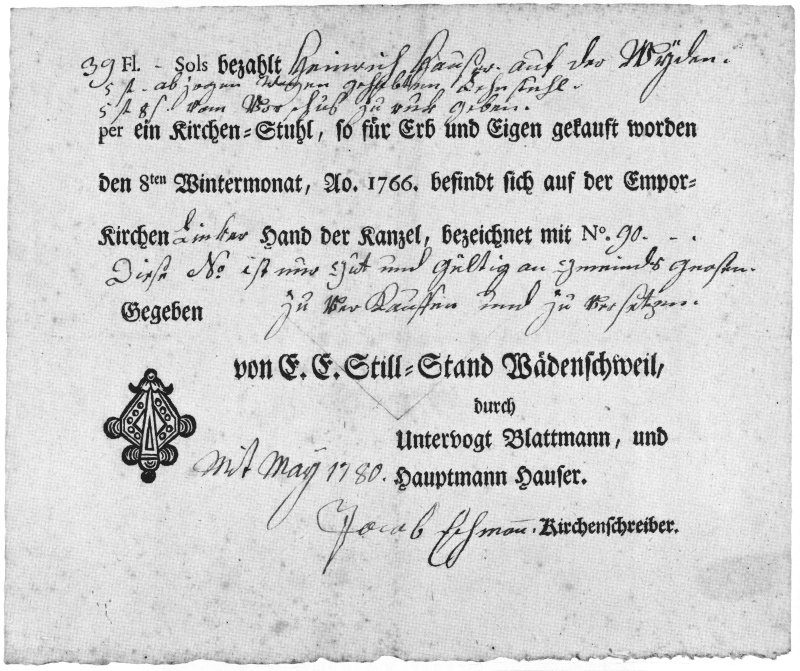 39 Fl. - Sols bezahlt Heinrich Hauser. auf der Wÿden.
5 fl. abzogen wegen gehabten Lehnstuhl.
5 fl 8 ß vom Vorschub zu ruk geben.
per ein Kirchen=Stuhl, so für Erb und Eigen gekauft worden
den 8ten Wintermonat, Ao. 1766. befindt sich auf der Empor=
Kirchen Linker Hand der Kanzel, bezeichnet mit No. 90. - .
Diese No ist nur gut und gültig an gmeinds gnosen.
zu verkauffen und zu versetzen.
Gegeben
von E. E. Still=Stand Wädenschweil,
durch
Untervogt Blattmann, und
Mit May 1780. Hauptmann Hauser.
Jacob Eschmann. Kirchenschreiber.